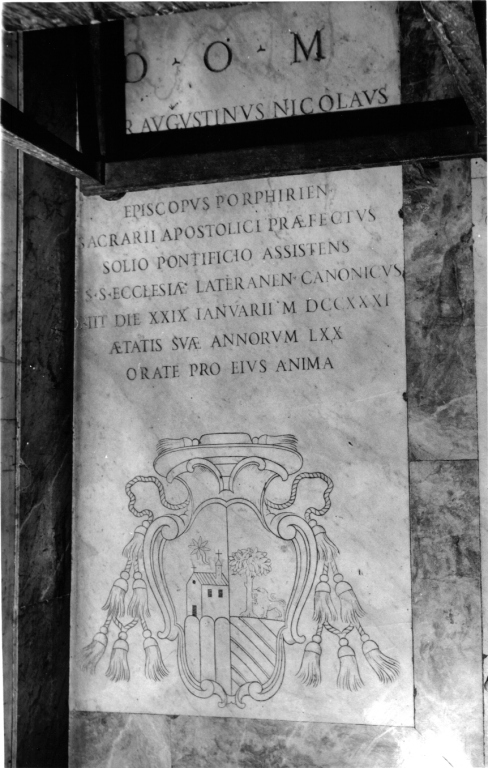 D · O · M
R AVGVSTINVS NICOLAVS
EPISCOPVS PORPHIRIEN·
SACRARII APOSTOLICI PRÆFECTVS
SOLIO PONTIFICIO ASSISTENS
S·S·ECCLESIÆ LATERANEN· CANONICVS
OBIIT DIE XXIX IANVARII M DCCXXXI
ÆTATIS SVÆ ANNORVM LXX
ORATE PRO EIVS ANIMA